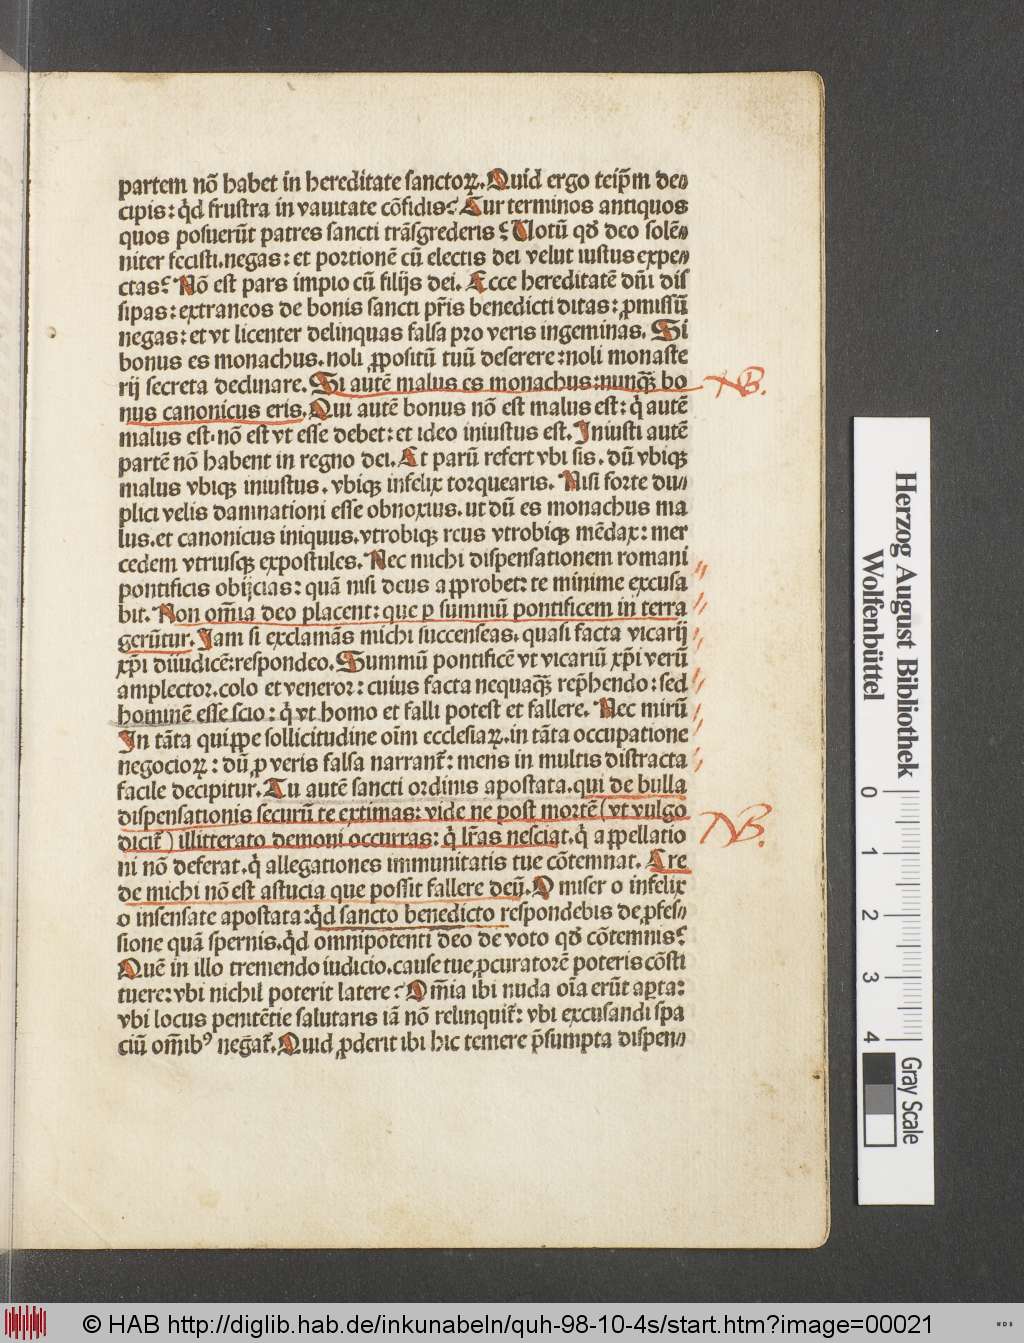 partem nō habet in hereditate sanctoꝝ. Quid ergo teip̄m de⸗
cipis: qͥd frustra in vauitate cōfidis? Cur terminos antiquos
quos posuerūt patres sancti trāsgrederis? Votū qđ deo solē⸗
niter fecisti. negas: et portionē cū electis dei velut iustus expe⸗
ctas? Nō est pars impio cū filijs dei. Ecce hereditatē dn̄i dis
sipas: extraneos de bonis sancti pr̄is benedicti ditas: ꝓmissū
negas: et vt licenter delinquas falsa pro veris ingeminas. Si
bonus es monachus. noli ꝓpositū tuū deserere: noli monaste
rij secreta declinare. Si autē malus es monachus: nunqꝫ̄ bo
nus canonicus eris. Qui autē bonus nō est malus est: qͥ autē
malus est. nō est vt esse debet: et ideo iniustus est. Iniusti autē
partē nō habent in regno dei. Et parū refert vbi sis. dū vbiqꝫ
malus vbiqꝫ iniustus. vbiqꝫ infelix torquearis. Nisi forte du⸗
plici velis damnationi esse obnoxius. ut dū es monachus ma
lus. et canonicus iniquus. vtrobiqꝫ reus vtrobiqꝫ mēdax: mer
cedem vtriusqꝫ expostules. Nec michi dispensationem romani
pontificis obijcias: quā nisi deus aꝓprobet: te minime excusa
bit. Non om̄ia deo placent: que ꝑ summū pontificem in terra
gerūtur. Iam si exclamās michi succenseas. quasi facta vicarij
xp̄i diiudicē: respondeo. Summū pontificē vt vicariū xp̄i verū
amplector. colo et veneror: cuius facta nequaqꝫ̄ rep̄hendo: sed
hominē esse scio: qͥ vt homo et falli potest et fallere. Nec mirū
In tāta quiꝓpe sollicitudine oīm ecclesiaꝝ. in tāta occupatione
negocioꝝ: dū ꝓ veris falsa narrant̄: mens in multis distracta
facile decipitur. Tu autē sancti ordinis apostata. qui de bulla
dispensationis securū te extimas: vide ne post mortē (vt vulgo
dicit̄) illitterato demoni occurras: qͥ lr̄as nesciat. qͥ aꝓpellatio
ni nō deferat. qͥ allegationes immunitatis tue cōtemnat. Cre
de michi nō est astucia que possit fallere deū. O miser o infelix
o insensate apostata: qͥd sancto benedicto respondebis de ꝓfes⸗
sione quā spernis. qͥd omnipotenti deo de voto qđ cōtemnis?
Quē in illo tremendo iudicio. cause tue ꝓcuratorē poteris cōsti
tuere: vbi nichil poterit latere? Om̄ia ibi nuda oīa erūt aꝑta:
vbi locus penitētie salutaris iā nō relinquit̄: vbi excusandi spa
ciū om̄ibꝰ negat̄. Quid ꝓderit ibi hic temere p̄sumpta dispen⸗
NB.
NB.
Herzog August Bibliothek
Wolfenbüttel
0 1 2 3 4
Gray Scale
© HAB http://diglib.hab.de/inkunabeln/quh-98-10-4s/start.htm?image=00021
WDB